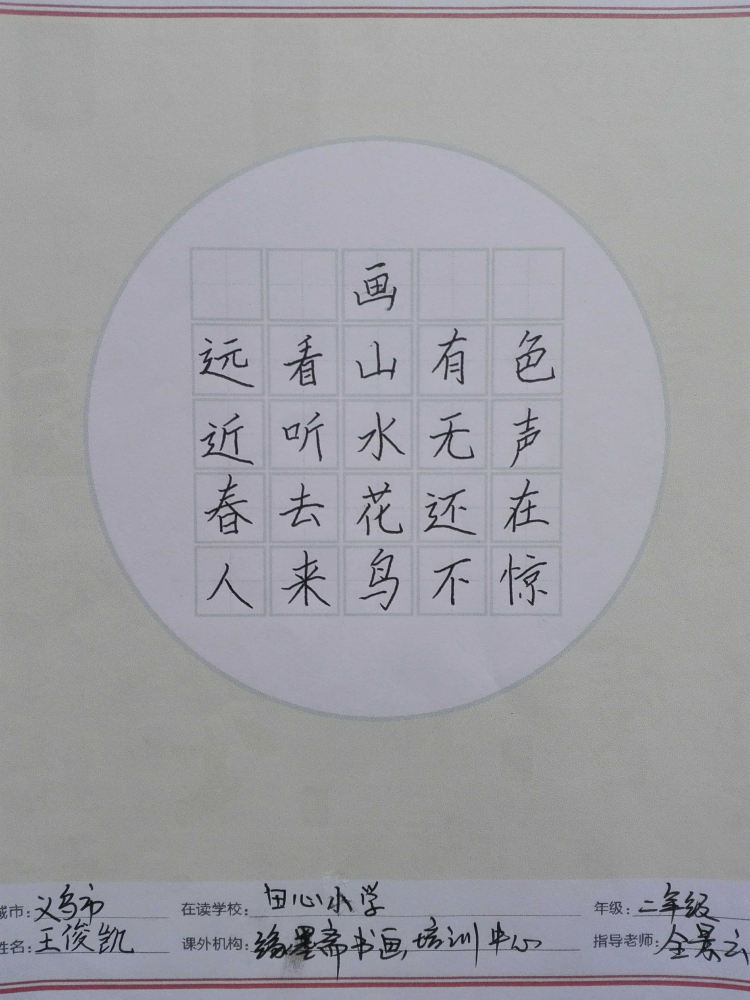 画
远看山有色
近听水无声
春去花还在
人来鸟不惊
城市:义乌市 在读学校:田心小学 年级:二年级
姓名:王俊凯 课外机构:缘墨斋书画培训中心 指导老师:全景云